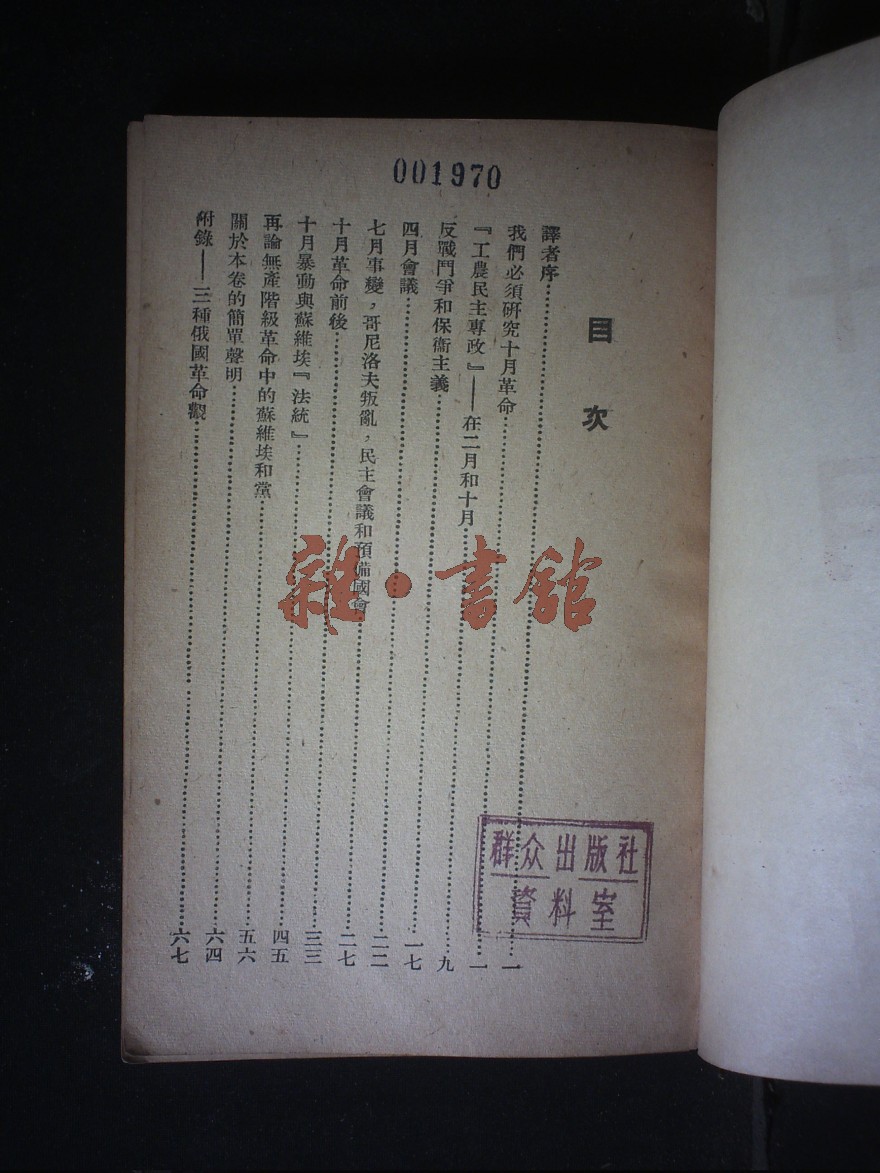 001970
目次
譯者序……一
我們必須研究十月革命……一
『工農民主專政』——在二月和十月……九
反戰鬥爭和保衞主義……一七
四月會議……二二
七月事變，哥尼洛夫叛亂，民主會議和預備國會……二七
十月革命前後……三三
十月暴動與蘇維埃『法統』……四五
再論無產階級革命中的蘇維埃和黨……五六
關於本卷的簡單聲明……六四
附錄——三種俄國革命觀……六七
雜·書館
群众出版社
資料室